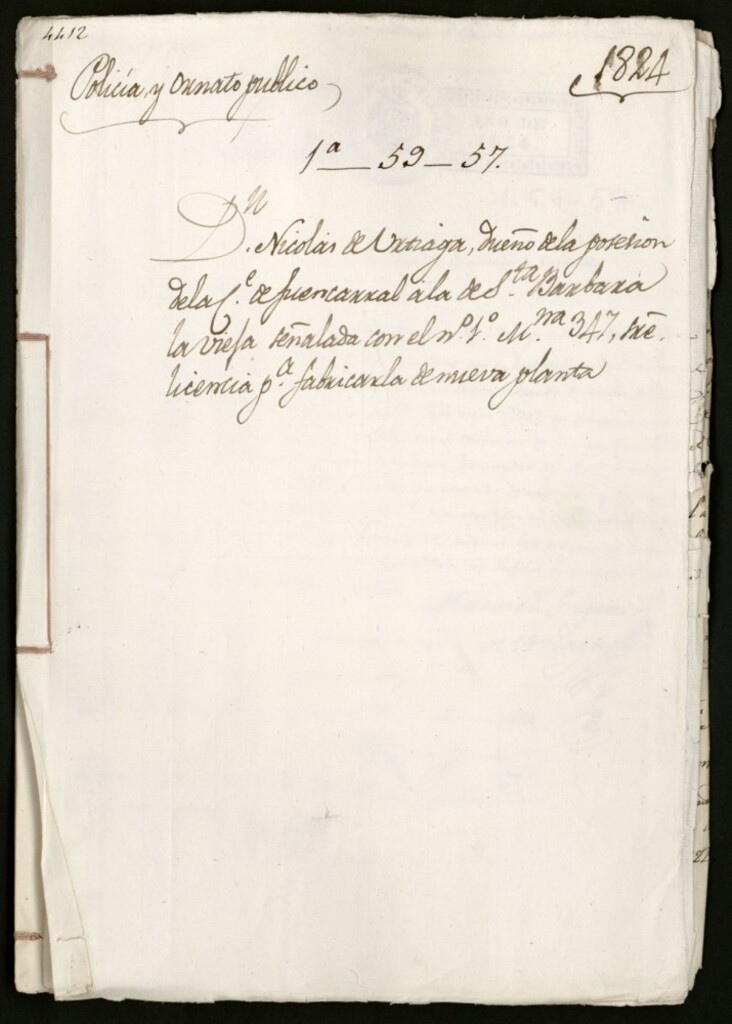 4412
Policía, y ornato publico
1824
1ª 59-57.
Dn. Nicolas de Urtiaga, dueño de la posesion
de la C.e de fuencarral à la de S.ta Barbara
la viefa señalada con el nº 1º M.na 347, sre.
licencia p.a fabricarla de nueva planta